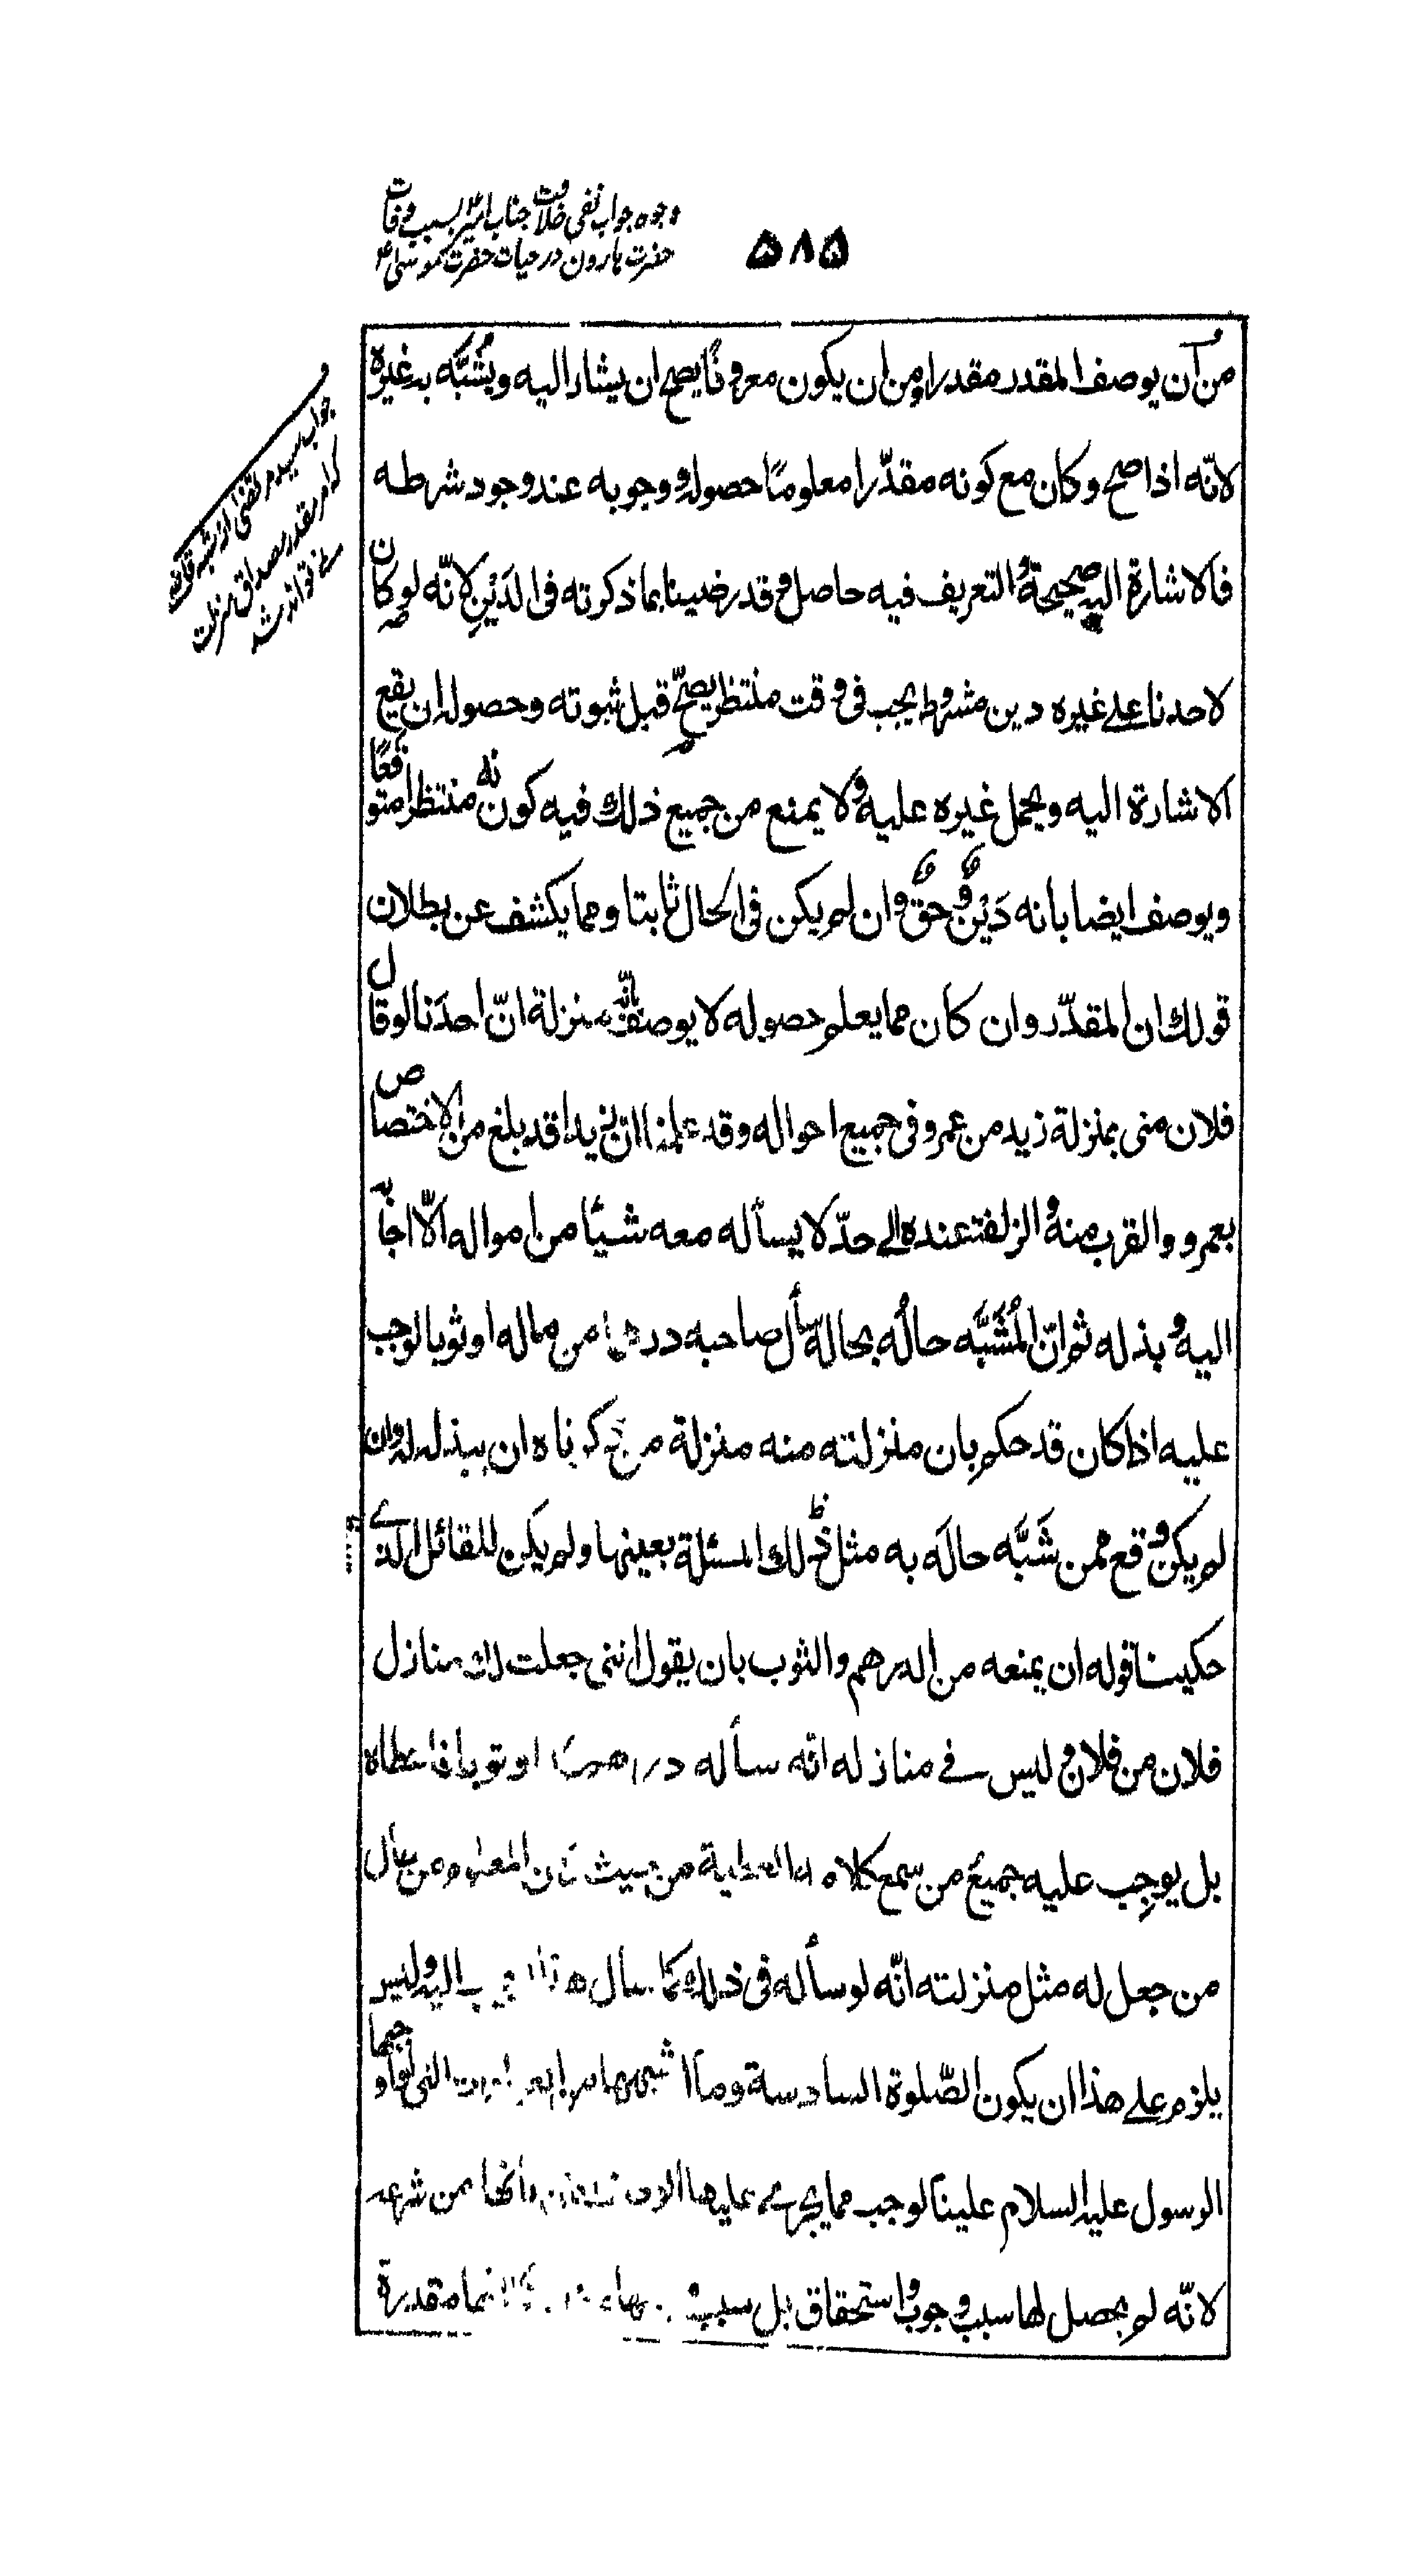 وجوه جواب نفی خلافت جناب امیرؑ بسبب وفات
حضرت هارون در حیات حضرت موسیؑ
۵۸۵
جواب سید مرتضی از شبه
که امر مقدر مصداق منزلت
نمے تواند شد
من أن يوصف المقدر مقدرا ومن ان يكون معروفًا يصح ان يشار اليه ويُشبَّه به غيره
لانّه اذا صح وكان مع كونه مقدّرا معلومًا حصوله ووجوبه عند وجود شرطه
فالاشارة اليه صحيحة والتعريف فيه حاصل وقد رضينا بما ذكرته فى الدَيْنِ لانّه لو كان
لاحدنا علے غيره دين مشروط يجب فى وقت منتظر يصحّ قبل ثبوته وحصوله ان يقع
الاشارة اليه ويحمل غيره عليه ولا يمنع من جميع ذلك فيه كونه منتظرا متوقعًا
ويوصف ايضا بانه دَيْنٌ وحقٌ وان لم يكن فى الحال ثابتا ومما يكشف عن بطلان
قولك ان المقدّر وان كان مما يعلم حصوله لا يوصف بأنّه منزلة انّ احدَنا لو قال
فلان منى بمنزلة زيد من عمرو فى جميع احواله وقد علمنا ان زيدا قد بلغ من الاختصاص
بعمرو والقرب منه والزلفة عنده الے حدّ لا يسأله معه شيئًا من امواله الّا اجابه
اليه وبذله ثم انّ المُشَبَّه حالُه بحاله سأل صاحبه درهما من ماله او ثوبا لوجب
عليه اذا كان قد حكم بان منزلته منه منزلة من ذكرناه ان يبذله له وان
لم يكن وقع ممن شَبَّه حالَه به مثل ذلك المسئلة بعينها ولم يكن للقائل الذے
حكينا قوله ان يمنعه من الدرهم والثوب بان يقول اننى جعلت لك منازل
فلان من فلان وليس فے منازله انّه سأله درهما او ثوبا فاعطاه
بل يوجب عليه جميع من سمع كلامه العطية من حيث كان المعلوم من حال
من جعل له مثل منزلته انّه لو سأله فى ذلك كما سأل هذا اليه وليس
يلزم علے هذا ان يكون الصّلوة السادسة وما اشبهها من التى لو أوجبها
الرسول عليه السلام علينا لوجب مما يجرے عليها الآن وأنها من شرعه
لانّه لم يحصل لها سبب وجوب واستحقاق بل سبب مقدرة